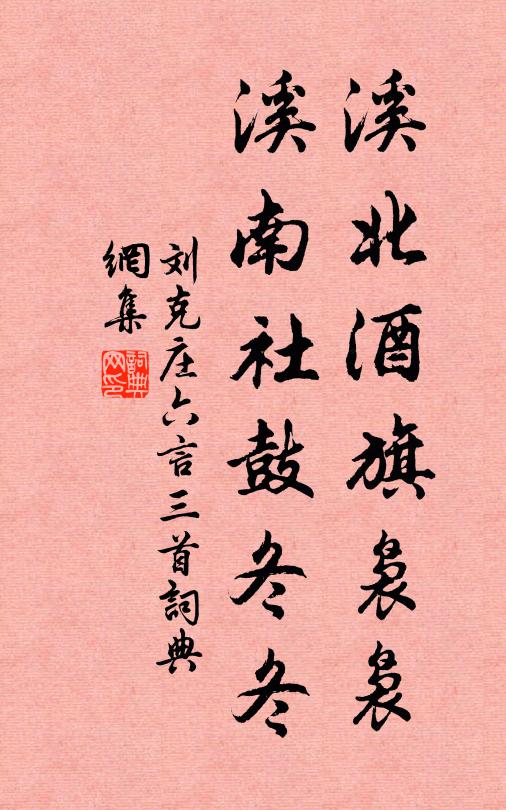 溪北酒旗裊裊
溪南社鼓冬冬
刘克庄六言三首詞典
網集
詞典
网印